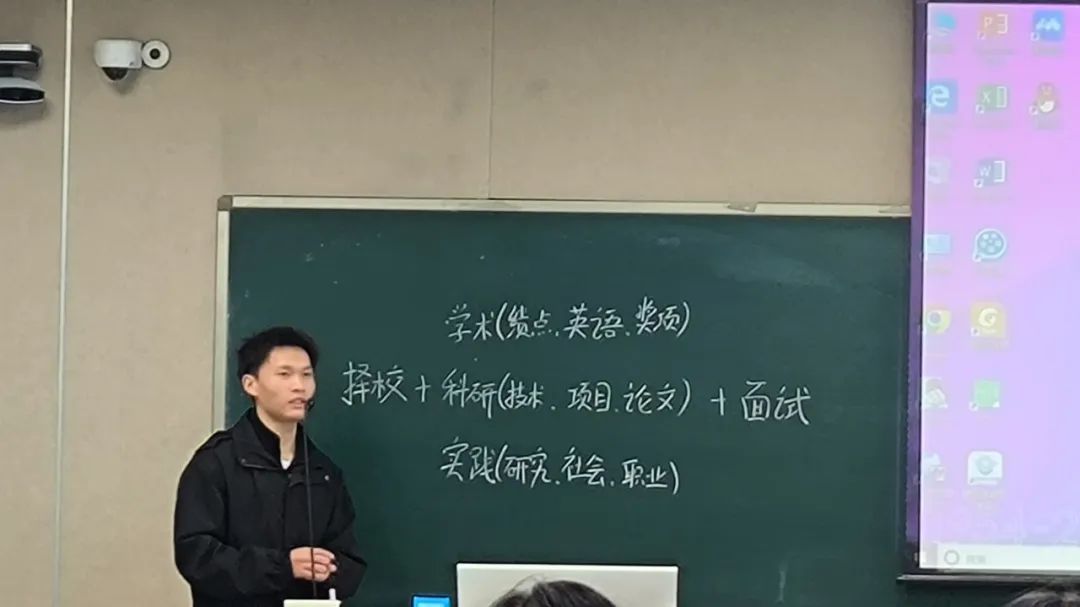 学术(绩点、英语、奖项)
择校+科研(技术、项目、论文)+面试
实践(研究、社会、职业)